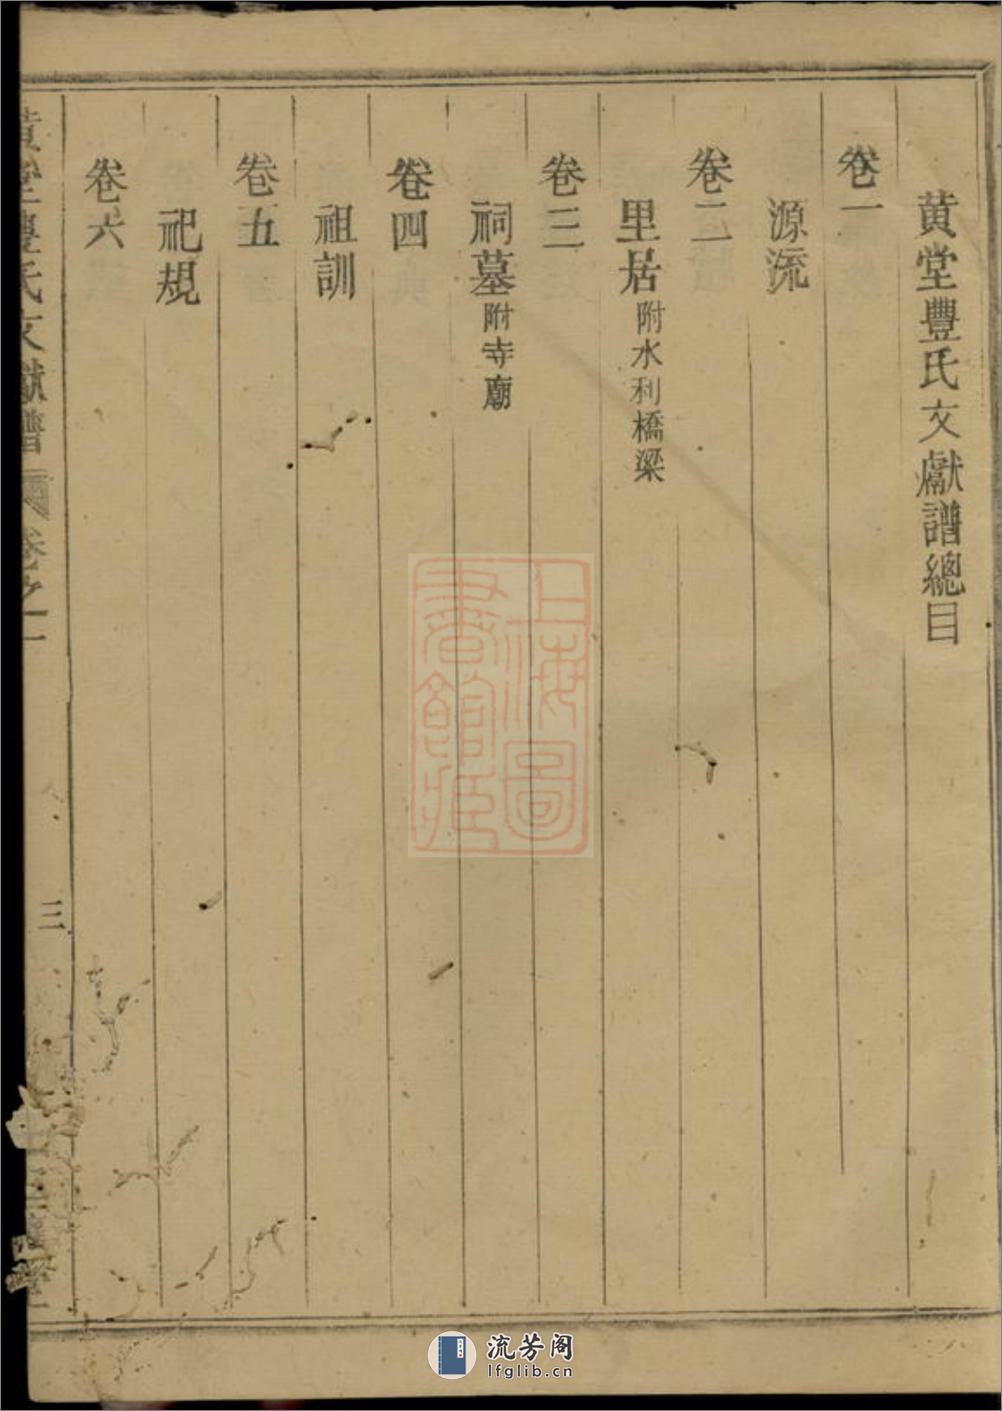 黃堂豐氏文獻譜總目
卷一
源流
卷二
里居附水利橋梁
卷三
祠墓附寺廟
卷四
祖訓
卷五
祀規
卷六
黃堂豐氏文獻譜
卷之一
三
上海圖書館藏
流芳阁
lfglib.cn